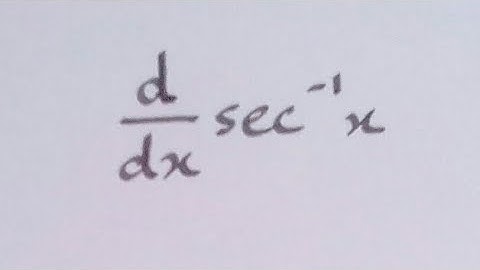 d/dx sec⁻¹x